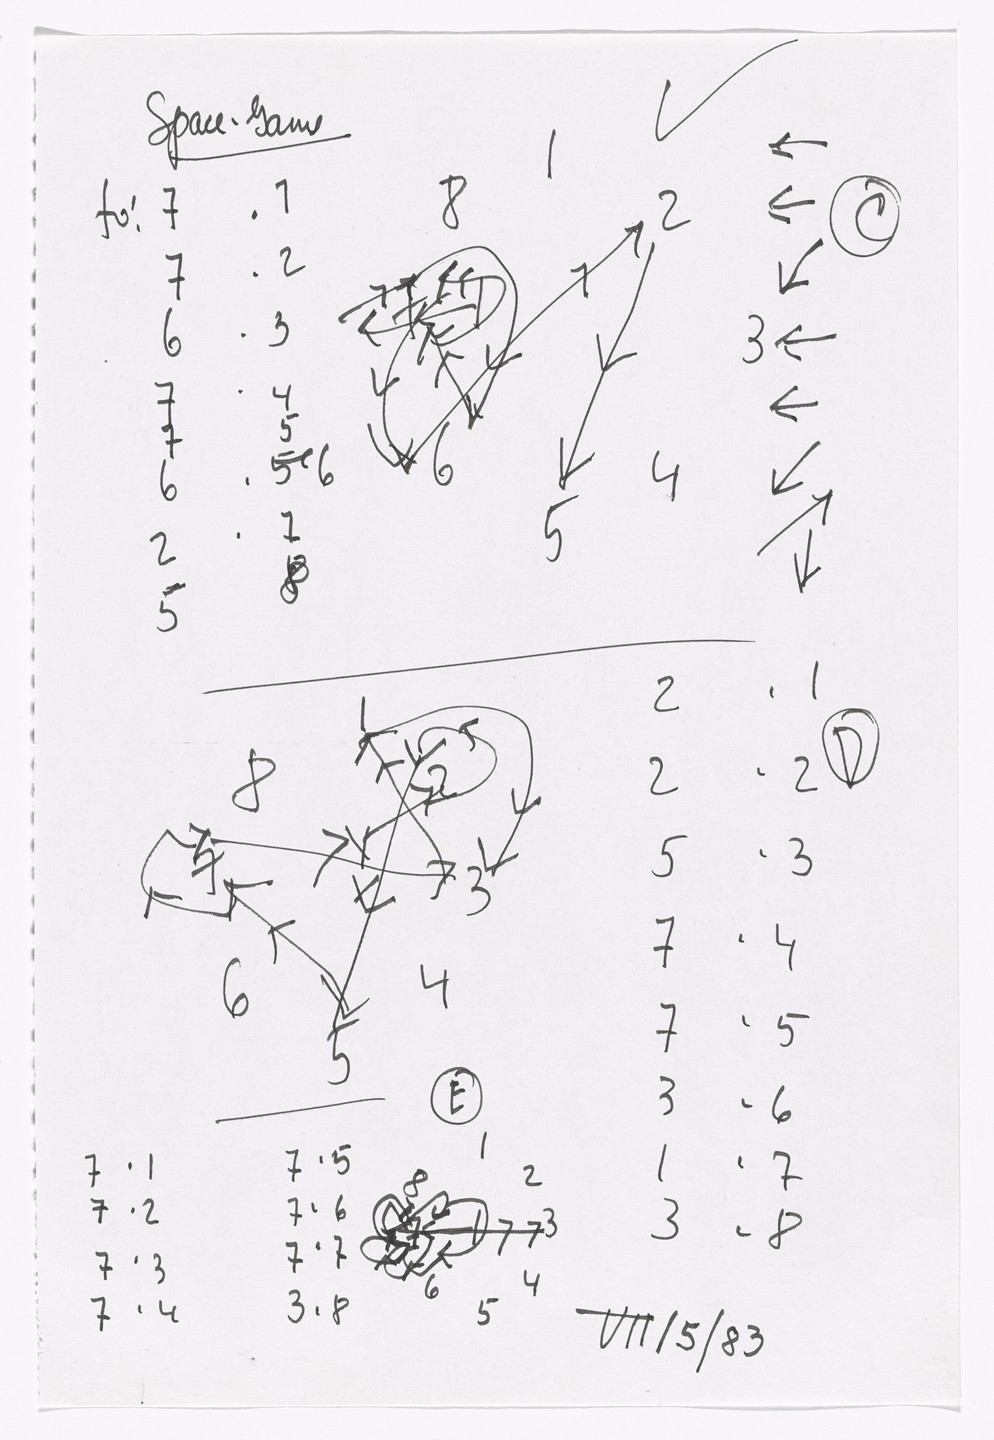 Space-Game
to: 7 . 1
7 . 2
6 . 3
7 . 4
7 5
6 . 5 6
2 . 7
5 8
1
8 2
3
6 4
5
C
2 . 1
2 . 2
5 . 3
7 . 4
7 . 5
3 . 6
1 . 7
3 . 8
D
1
8 2
7 3
6 4
5
E
7 . 1
7 . 2
7 . 3
7 . 4
7 . 5
7 . 6
7 . 7
3 . 8
1
8 2
7 3
6 4
5
VII/5/83